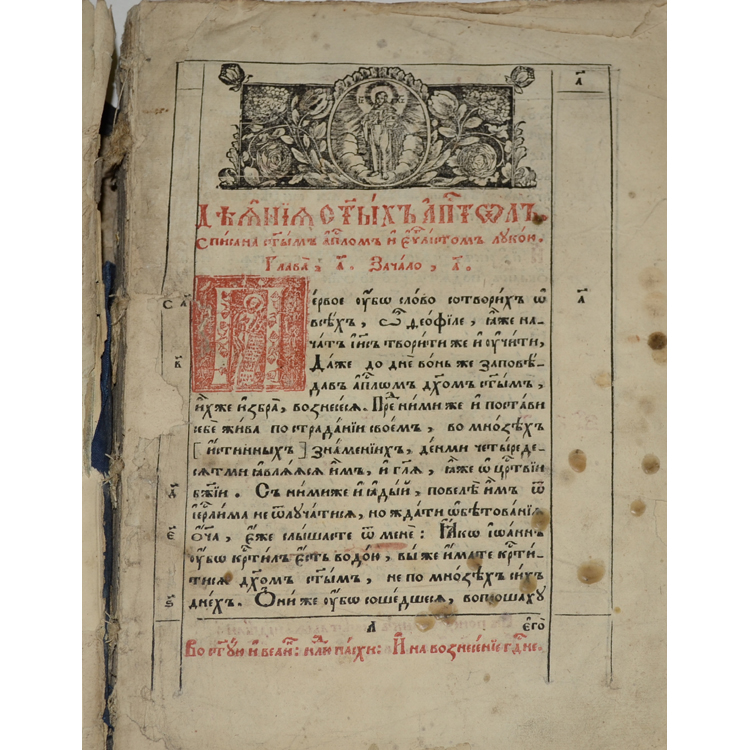 а҃
ДѢѦ҆НІѦ С҃ТЫ́ХЪ А҆П҃ТѠЛЪ.
Списана ст҃ы́мъ а҆п҃ломъ и҆ є҆ѵ҃лі́стомъ лꙋко́ю.
Глава̀, а҃. Зача́ло, а҃.
Пе́рвое ᲂу҆́бѡ сло́во сотвори́хъ ѡ҆
всѣ́хъ, ѽ ѳео́філе, ꙗ҆̀же на-
ча́тъ і҆и҃съ твори́ти же и҆ ᲂу҆чи́ти,
Да́же до днѐ во́ньже заповѣ́-
давъ а҆п҃лѡмъ дх҃омъ ст҃ы́мъ,
и҆́хже и҆збра̀, вознесе́сѧ. Пре́ ни́ми же и҆ поста́ви
себѐ жи́ва по страда́нїи свое́мъ, во мно́зѣхъ
[и҆́стинныхъ] зна́менїихъ, де́нми четы́реде-
сѧтми ꙗ҆влѧ́ѧсѧ и҆̀мъ, и҆ гл҃ѧ, ꙗ҆̀же ѡ҆ црⷭ҇твїи
бж҃їи. Съ ни́миже и҆ ꙗ҆ды́й, повелѣ̀ и҆̀мъ ѿ
і҆ерⷭ҇ли́ма не ѿлꙋча́тисѧ, но жда́ти ѡ҆бѣтова́нїѧ
ѻ҆́ч҃а, є҆́же слы́шасте ѿ менѐ: Ꙗ҆́кѡ і҆ѡа́ннъ
ᲂу҆́бѡ крⷭ҇ти́лъ є҆́сть водо́ю, вы́ же и҆́мате крⷭ҇ти́-
тисѧ дх҃омъ ст҃ы́мъ, не по мно́зѣхъ си́хъ
дне́хъ. Ѻ҆ни́ же ᲂу҆́бѡ соше́дшесѧ, вопроша́хꙋ
а҃
є҆го̀
Во ст҃ꙋ́ю и҆ вели́: неⷣ́лю па́схи: И҆ на вознесе́нїе гдⷭ҇не.